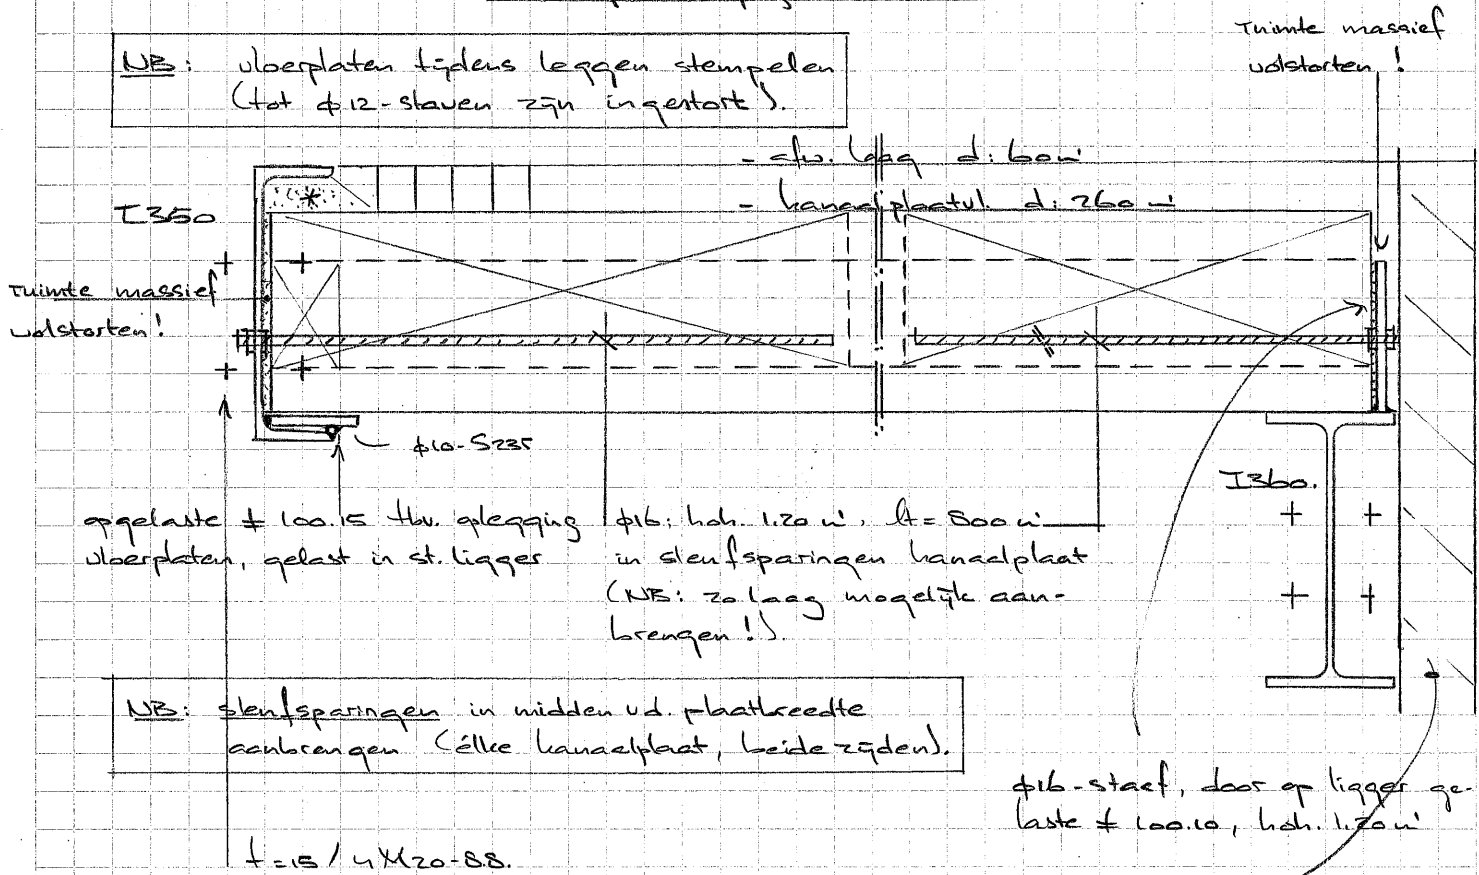 ruimte massief
volstorten!
NB: vloerplaten tijdens leggen stempelen
(tot ϕ12-staven zijn ingestort).
- afw. laag d: 60 m
- kanaalplaatvl. d: 260 m
I350
ruimte massief
volstorten!
ϕ10-S235
I360.
opgelaste ≠ 100.15 tbv. oplegging
vloerplaten, gelast in st. ligger
ϕ16: hoh. 1.20 m', lt = 800 m
in sleufsparingen kanaalplaat
(NB: zo laag mogelijk aan-
brengen!).
NB: sleufsparingen in midden vd. plaatbreedte
aanbrengen (élke kanaalplaat, beide zijden).
ϕ16-staaf, door op ligger ge-
laste ≠ 100.10, hoh. 1.20 m'
t=15 / 4M20-8.8.